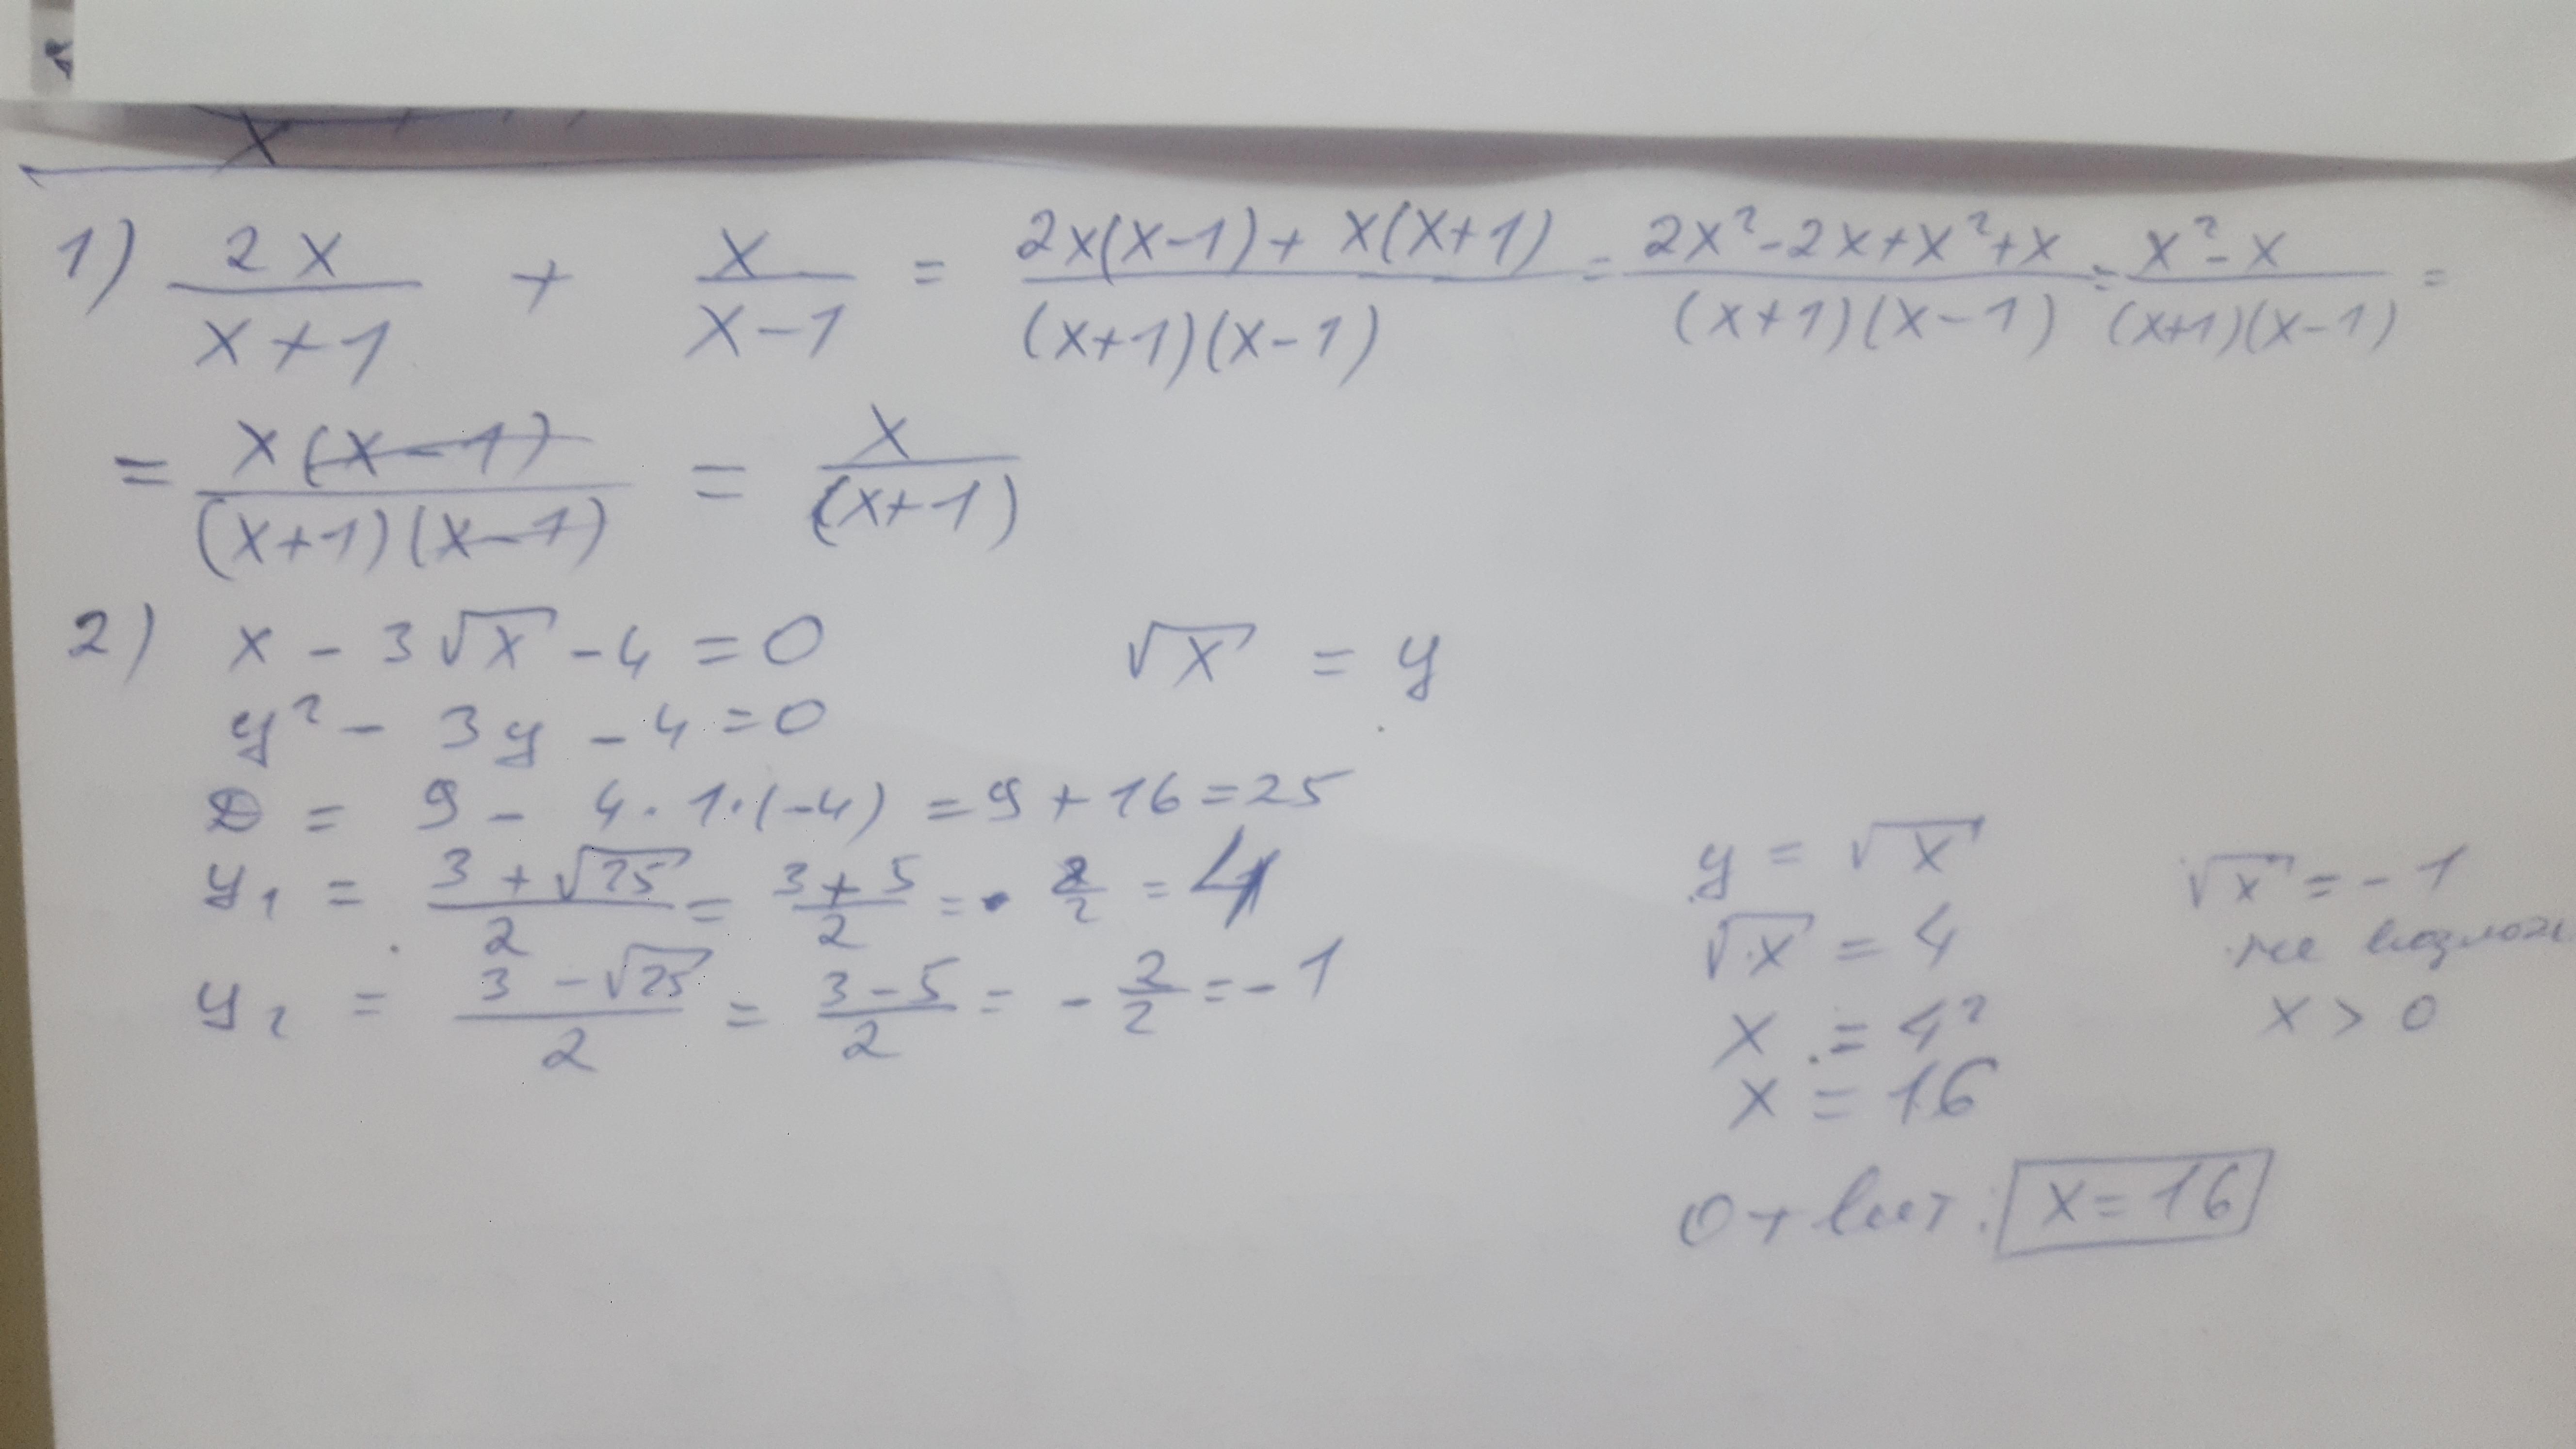 x
1) 2x/(x+1) + x/(x-1) = (2x(x-1) + x(x+1))/((x+1)(x-1)) = (2x²-2x+x²+x)/((x+1)(x-1)) = (x²-x)/((x+1)(x-1)) =
= x(x-1)/((x+1)(x-1)) = x/(x+1)
2) x - 3√x - 4 = 0 √x = y
y² - 3y - 4 = 0
D = 9 - 4·1·(-4) = 9 + 16 = 25
y₁ = (3 + √25)/2 = (3+5)/2 = 8/2 = 4
y₂ = (3 - √25)/2 = (3-5)/2 = -2/2 = -1
y = √x
√x = 4
x = 4²
x = 16
√x = -1
не возмож
x > 0
Ответ: x = 16